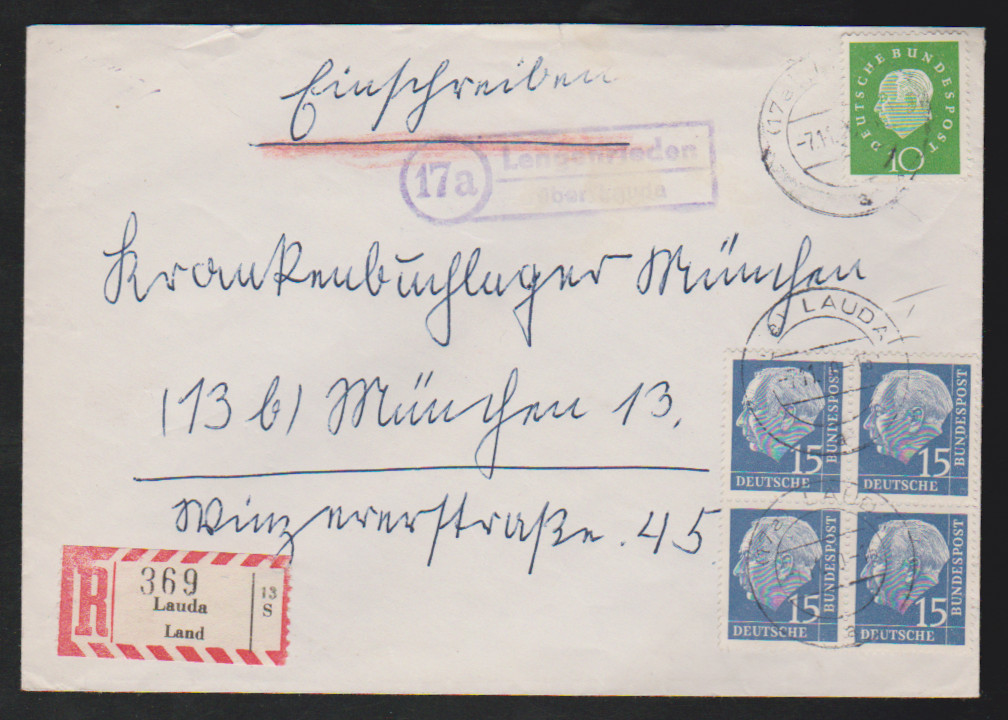 Einschreiben
DEUTSCHE BUNDESPOST
10
-7.11.
a
17a
Lengenrieden
über Lauda
Krankenbuchlager München
LAUDA
(13 b) München 13.
Winzererstraße. 45
15 BUNDESPOST
DEUTSCHE
15 BUNDESPOST
DEUTSCHE
15 BUNDESPOST
DEUTSCHE
15 BUNDESPOST
DEUTSCHE
R
369
Lauda
Land
13
S